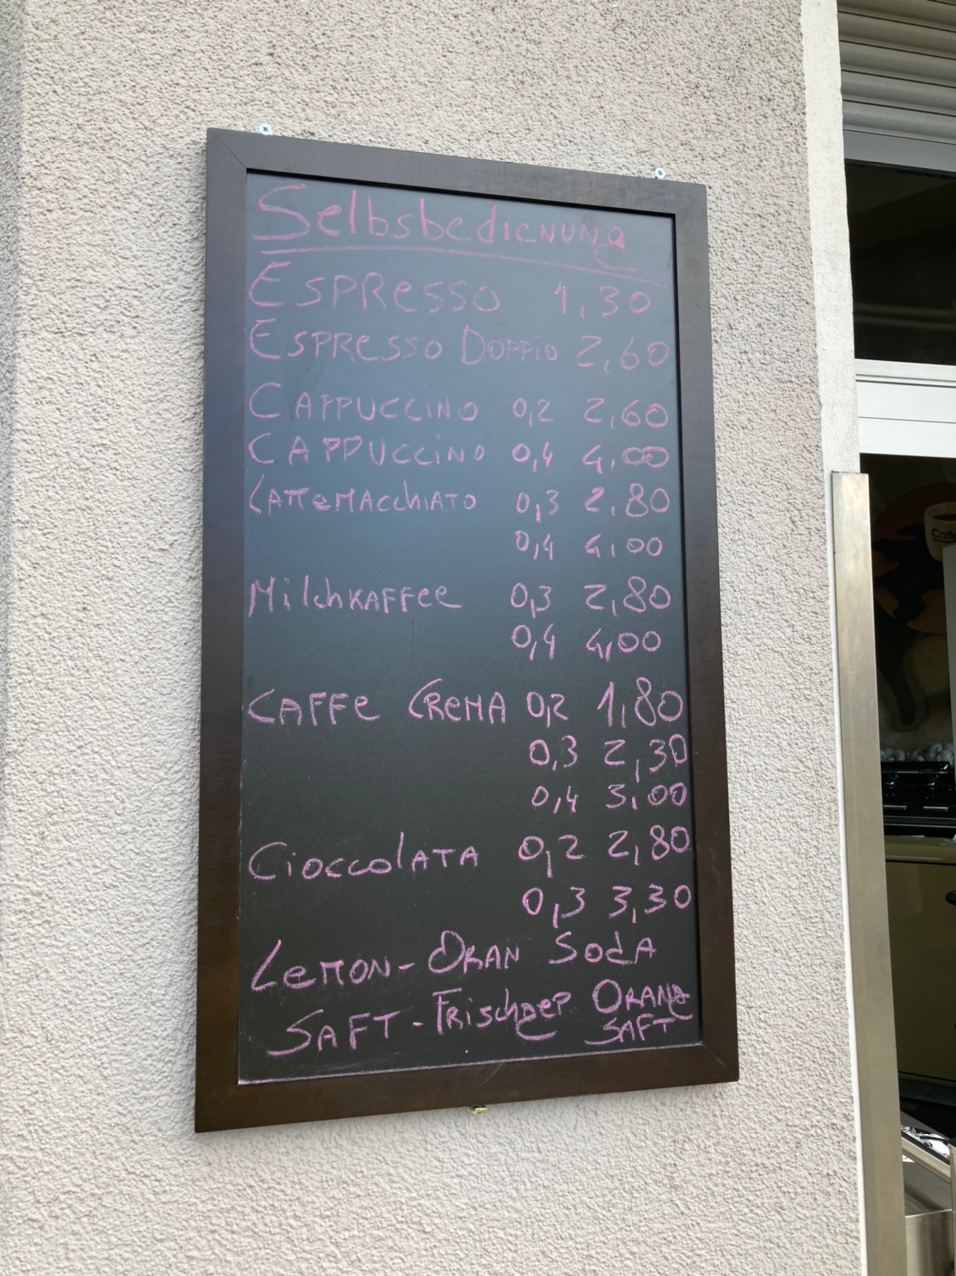 Selbsbedienung
Espresso 1,30
Espresso Doppio 2,60
Cappuccino 0,2 2,60
Cappuccino 0,4 4,00
Lattemacchiato 0,3 2,80
0,4 4,00
Milchkaffee 0,3 2,80
0,4 4,00
Caffe Crema 0,2 1,80
0,3 2,30
0,4 3,00
Cioccolata 0,2 2,80
0,3 3,30
Lemon-Oran Soda
Saft-Frischgep Orang
Saft